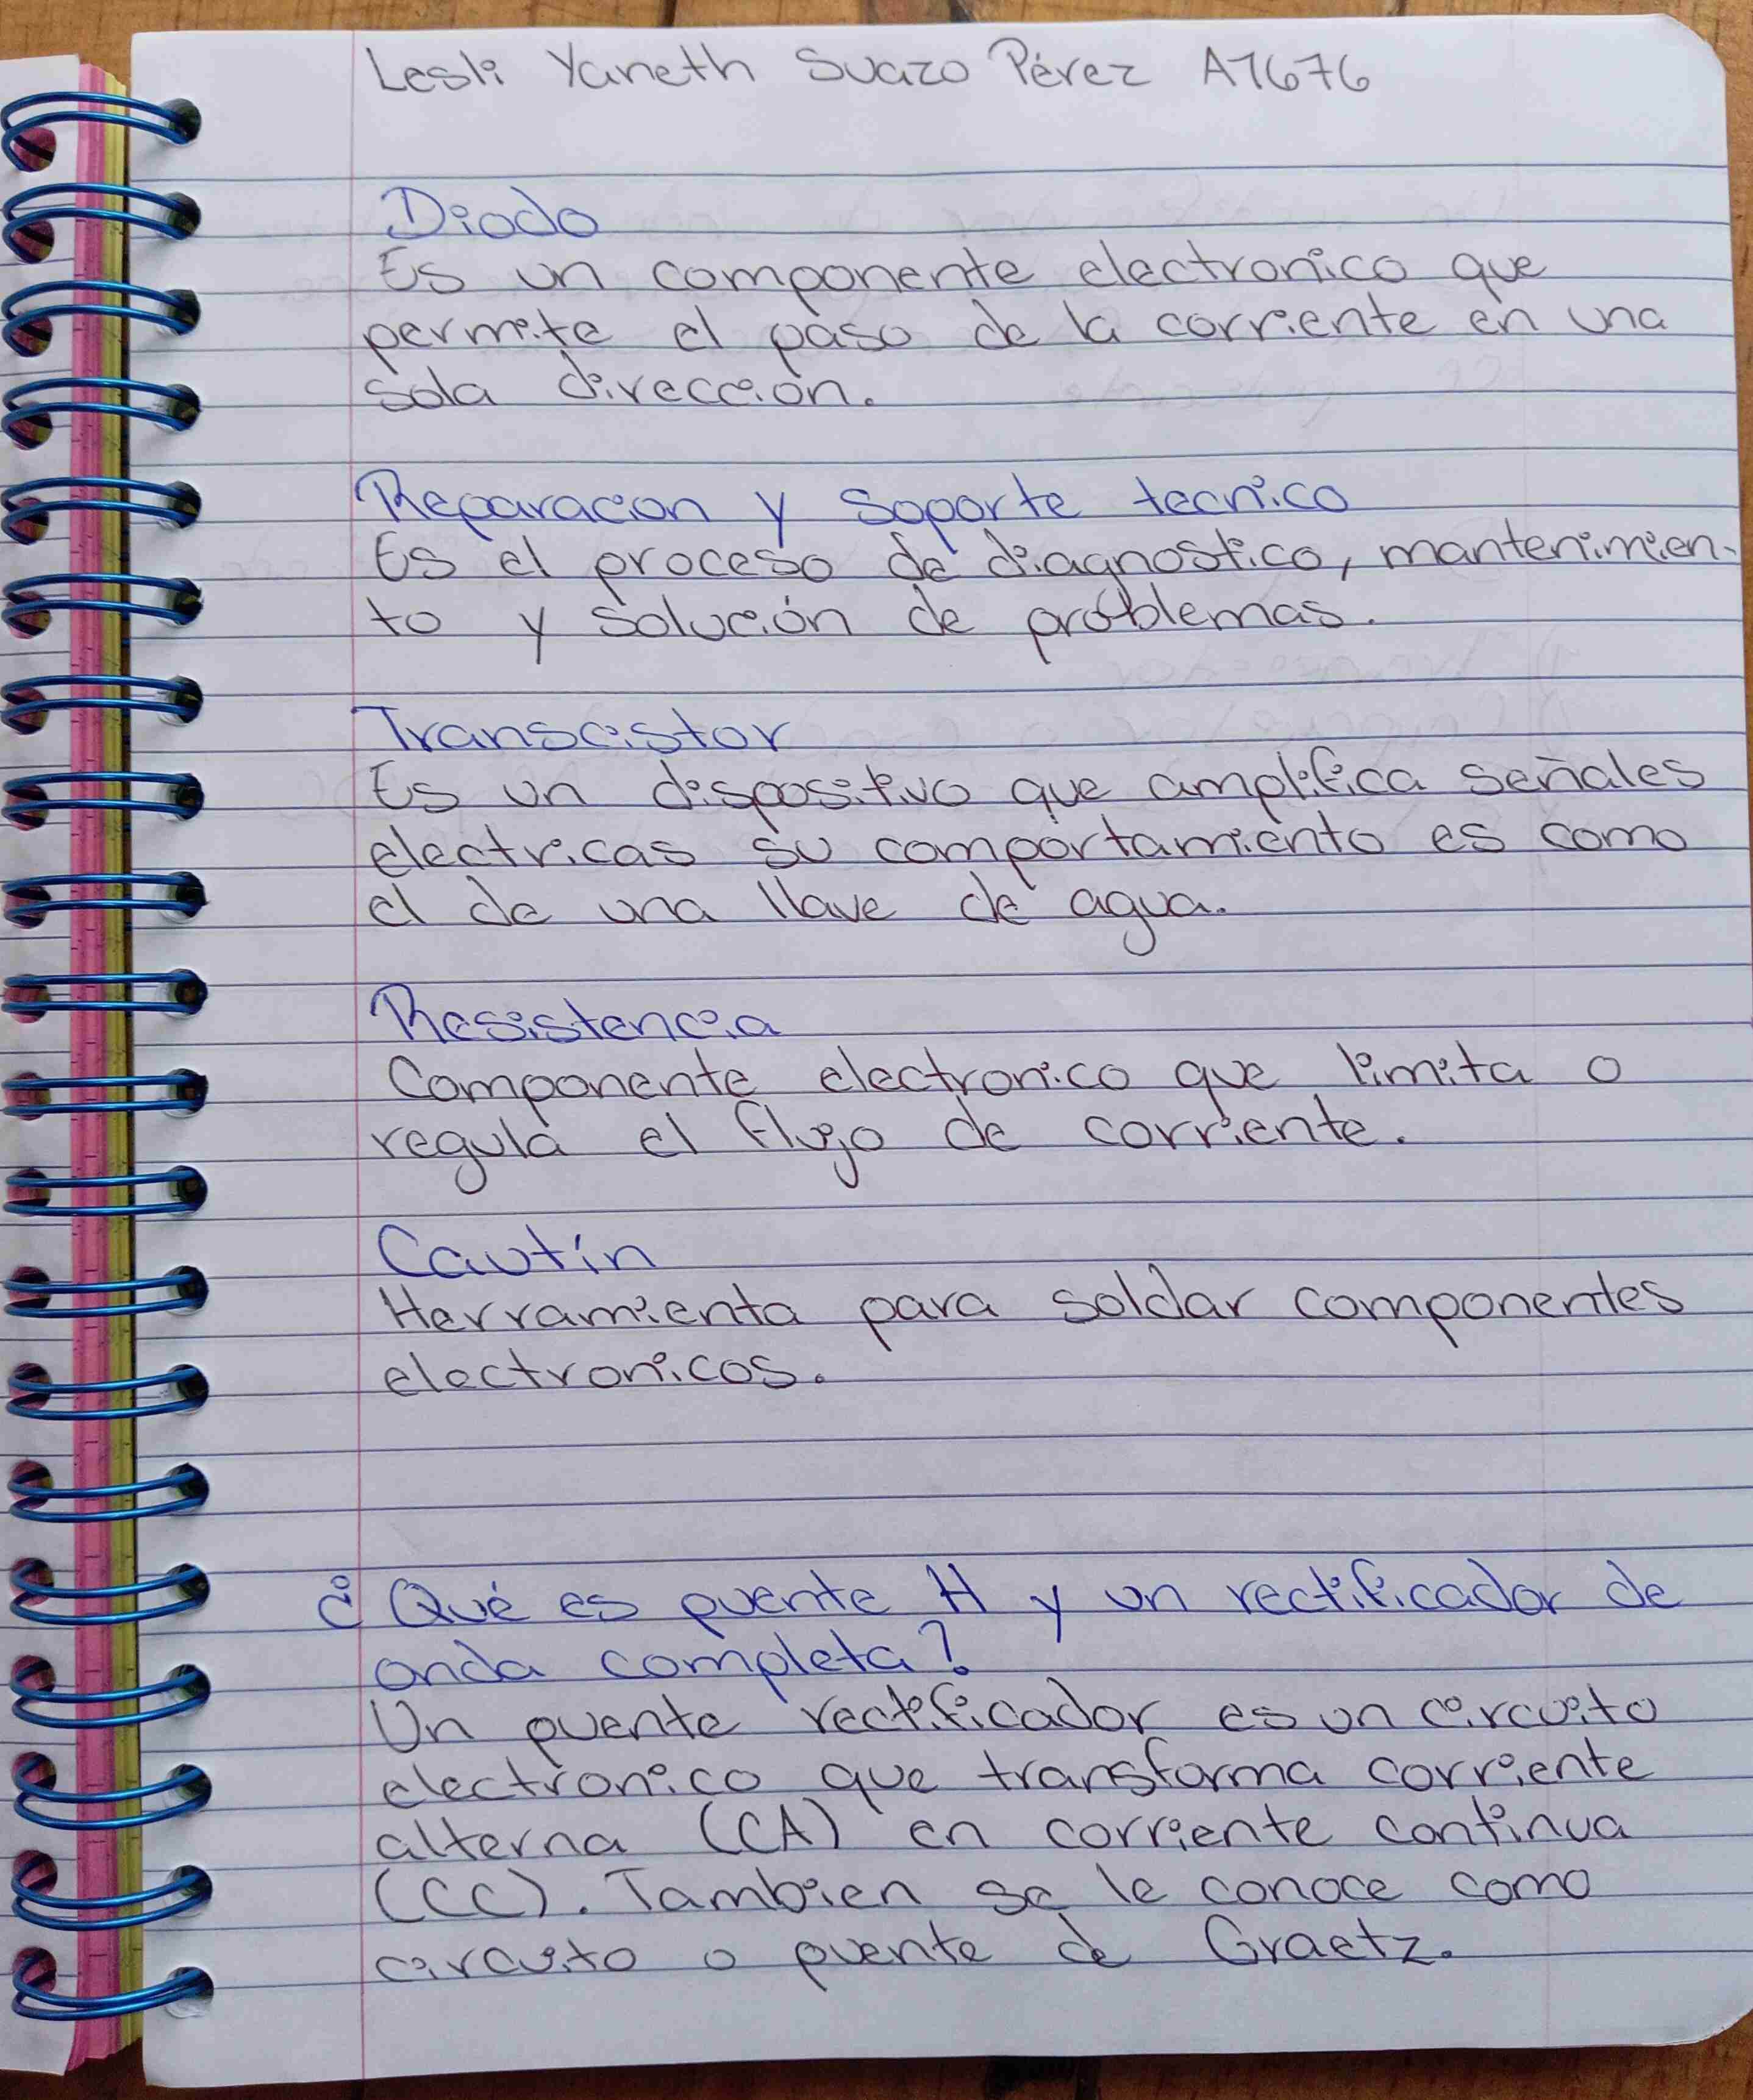 Lesli Yaneth Suazo Pérez A7676
Diodo
Es un componente electronico que
permite el paso de la corriente en una
sola dirección.
Reparacion y soporte tecnico
Es el proceso de diagnostico, mantenimien-
to y solución de problemas.
Transcistor
Es un dispositivo que amplifica señales
electricas su comportamiento es como
el de una llave de agua.
Resistencia
Componente electronico que limita o
regula el flujo de corriente.
Cautín
Herramienta para soldar componentes
electronicos.
¿Qué es puente H y un rectificador de
onda completa?
Un puente rectificador es un circuito
electronico que transforma corriente
alterna (CA) en corriente continua
(CC). Tambien se le conoce como
circuito o puente de Graetz.